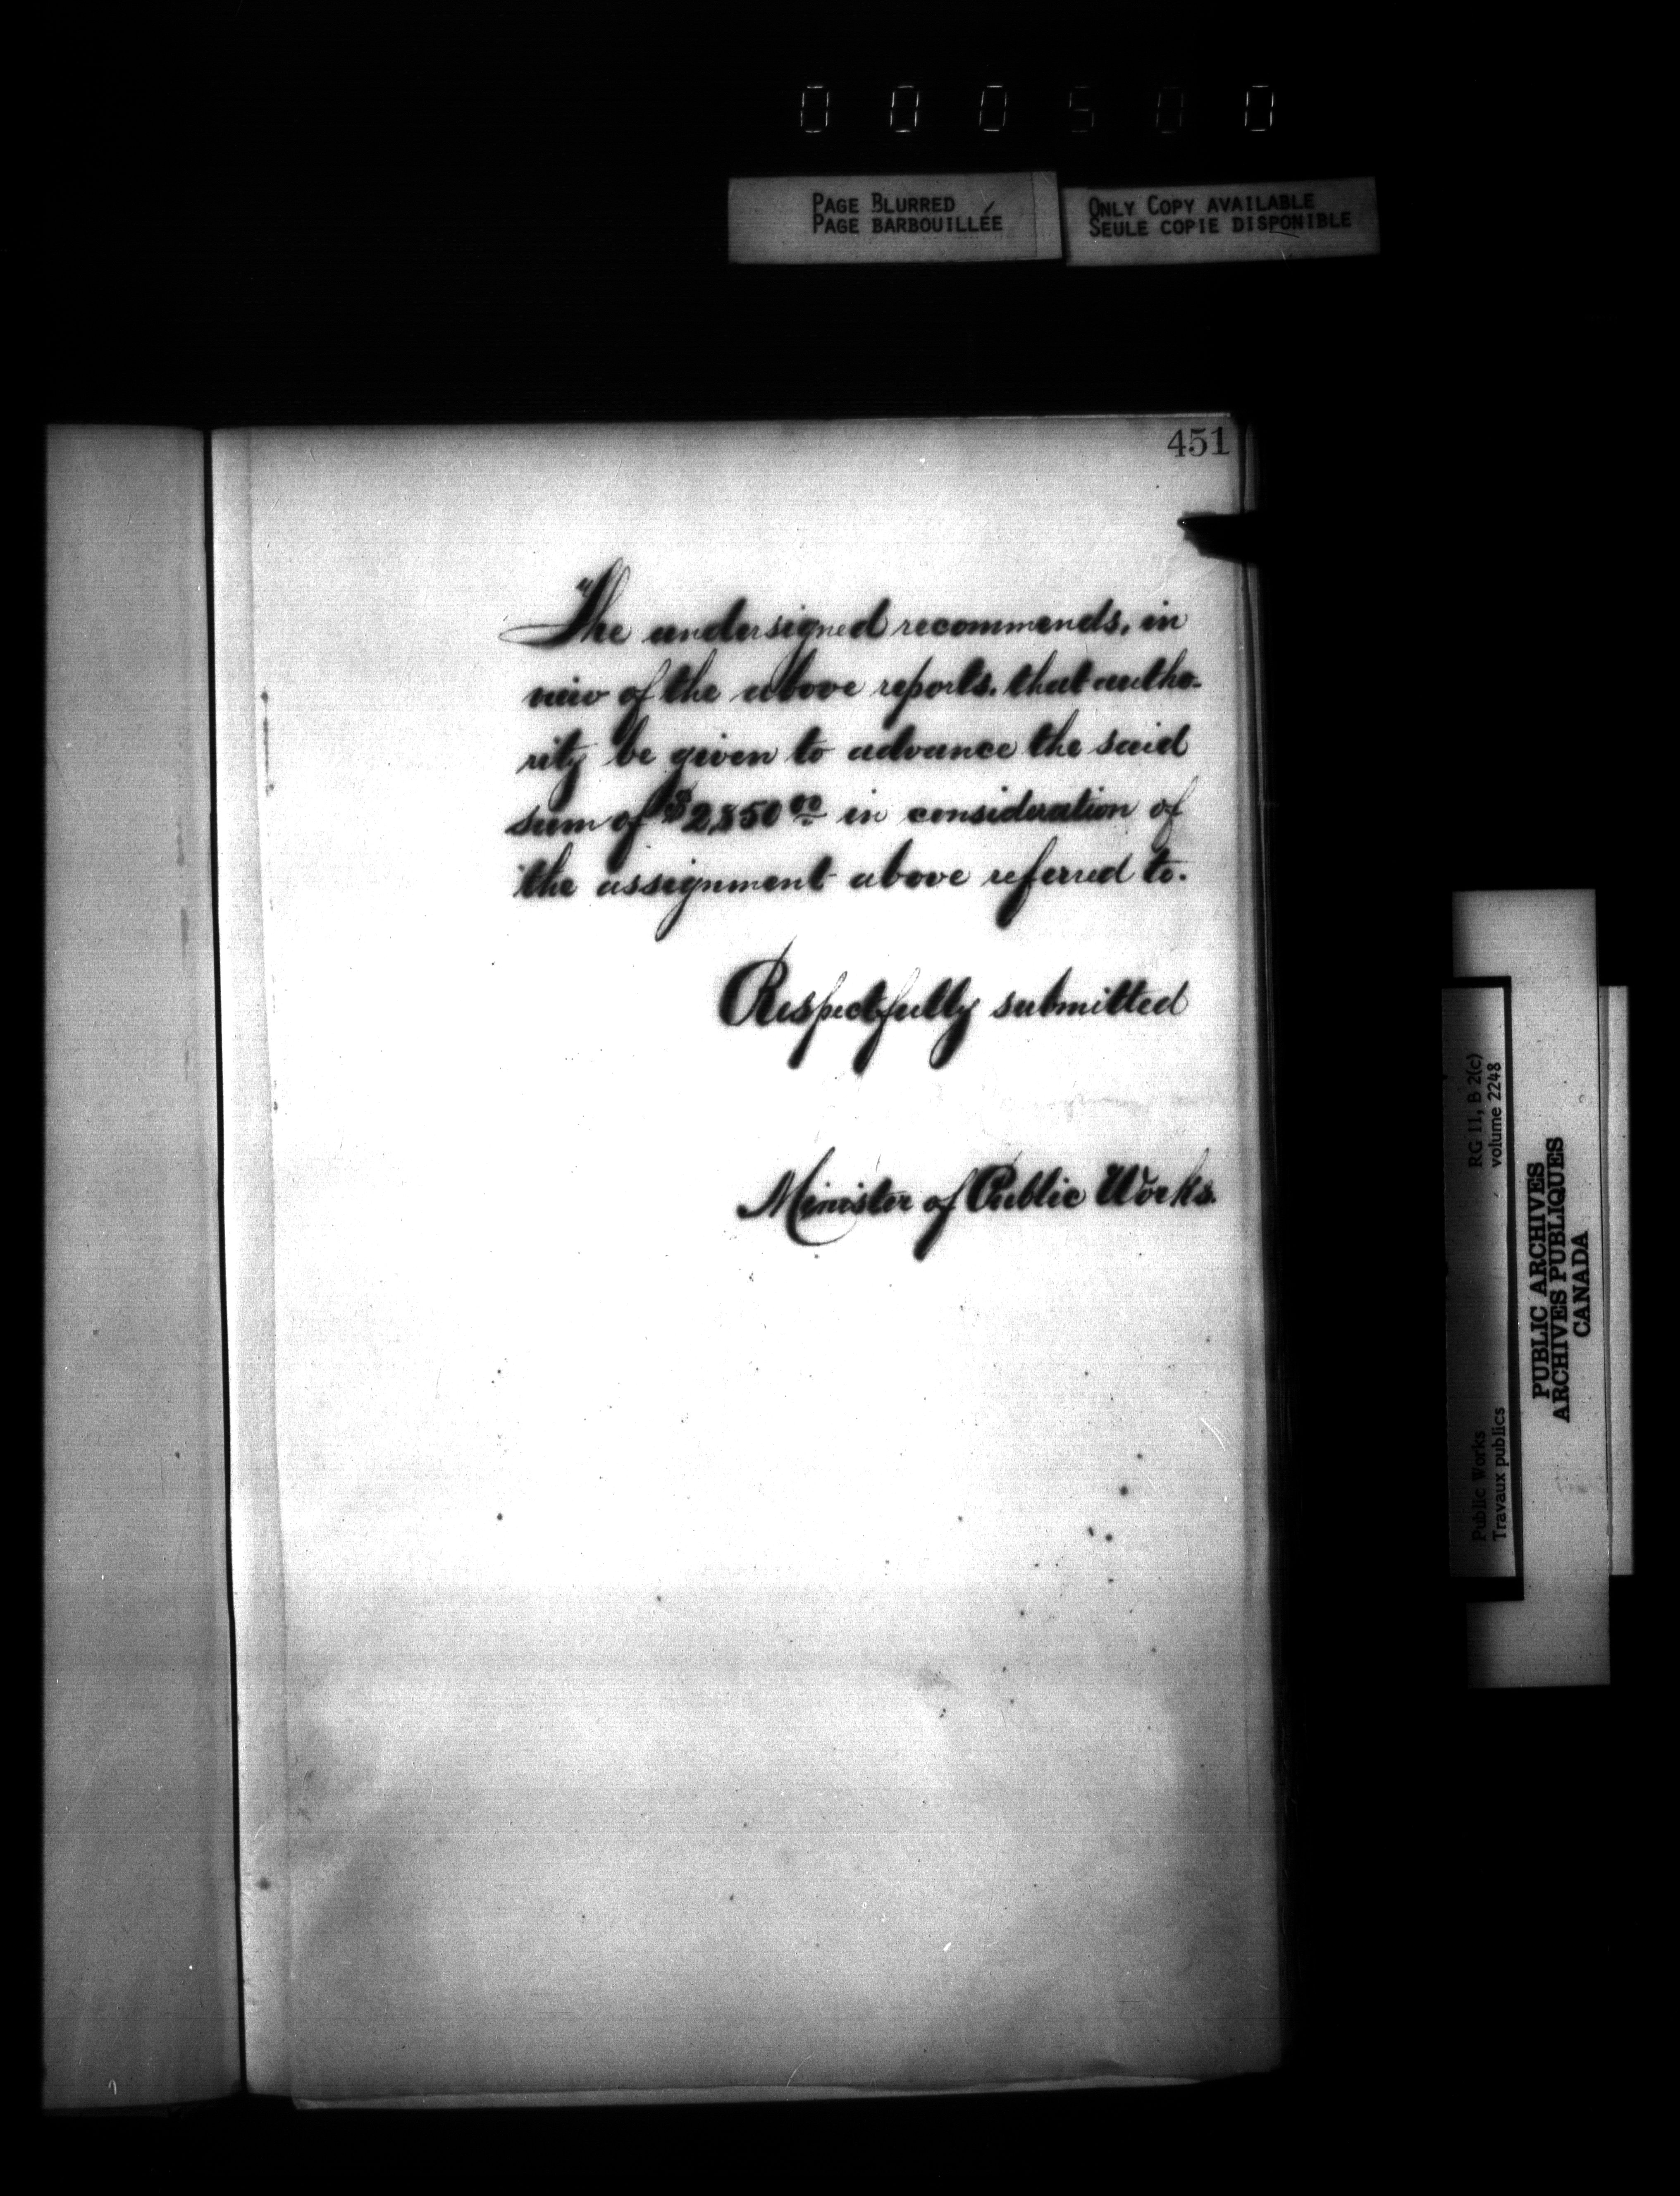 000500
PAGE BLURRED
PAGE BARBOUILLÉE
ONLY COPY AVAILABLE
SEULE COPIE DISPONIBLE
451
The undersigned recommends, in
view of the above reports, that autho-
rity be given to advance the said
sum of $2,850 00 in consideration of
the assignment above referred to.
Respectfully submitted
Minister of Public Works.
Public Works
Travaux publics
RG 11, B 2(c)
volume 2248
PUBLIC ARCHIVES
ARCHIVES PUBLIQUES
CANADA